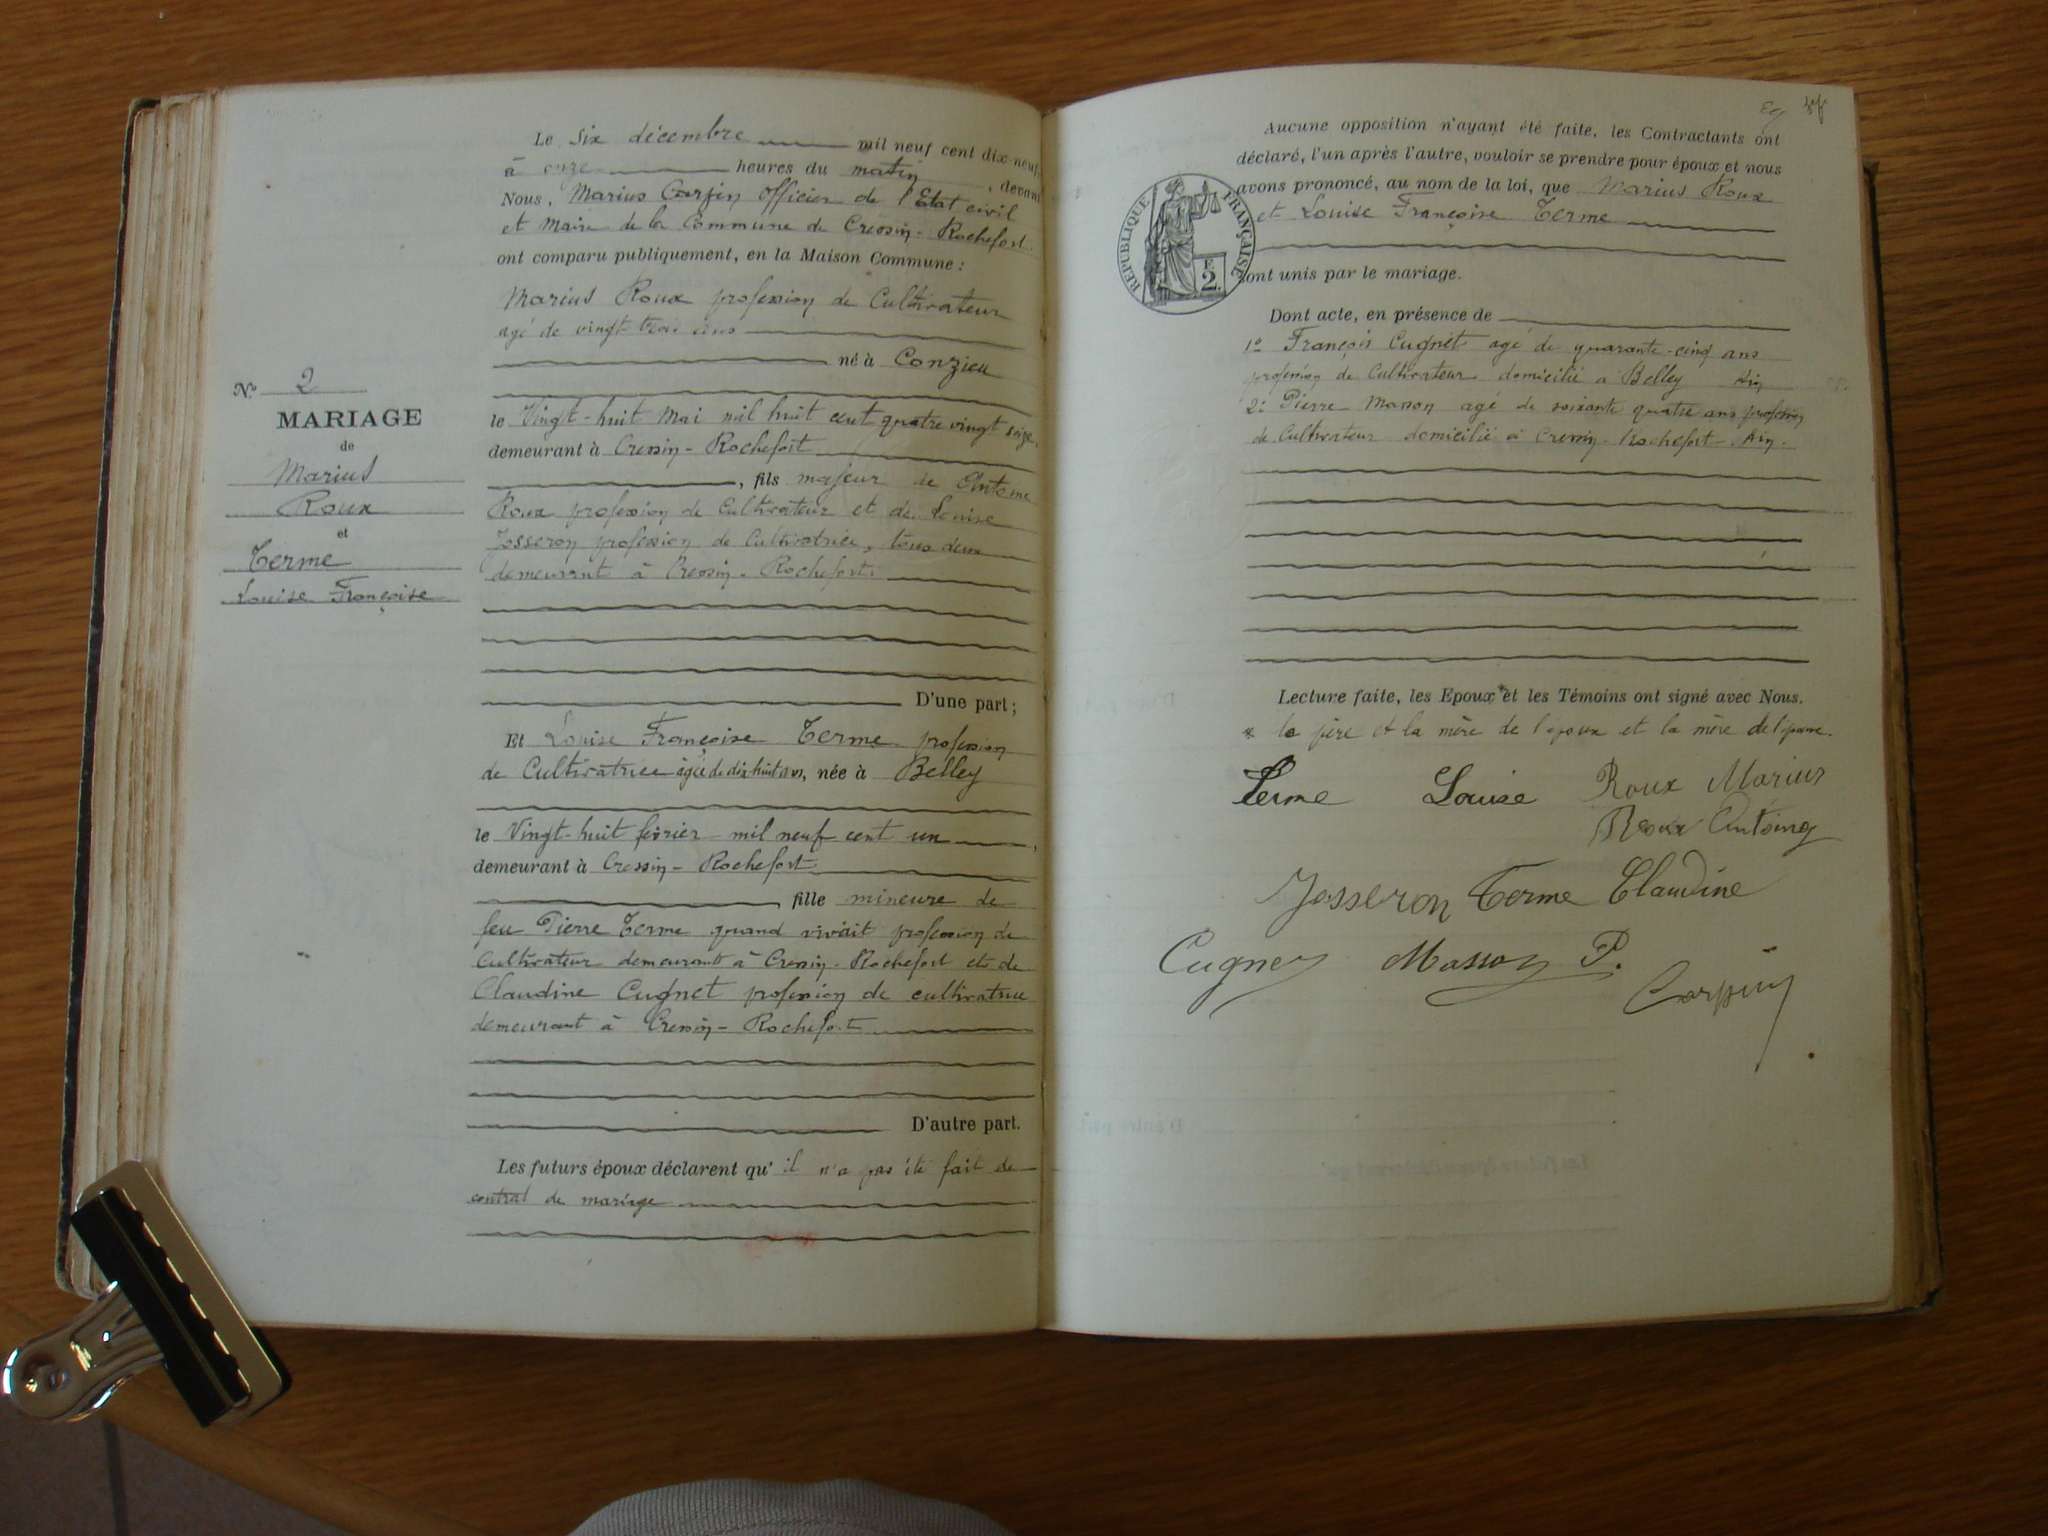 Le Six décembre mil neuf cent dix-neuf,
à onze heures du matin, devant
Nous, Marius Carpin Officier de l'Etat civil
et Maire de la Commune de Cressin-Rochefort
ont comparu publiquement, en la Maison Commune :
Marius Roux profession de Cultivateur
agé de vingt trois ans
né à Conzieu
le Vingt-huit Mai mil huit cent quatre vingt seize,
demeurant à Cressin-Rochefort
, fils majeur de Antoine
Roux profession de Cultivateur et de Louise
Josseron profession de Cultivatrice, tous deux
demeurant à Cressin-Rochefort.
D'une part ;
Et Louise Françoise Terme profession
de Cultivatrice agée de dix huit ans, née à Belley
le Vingt-huit février mil neuf cent un,
demeurant à Cressin-Rochefort
, fille mineure de
feu Pierre Terme quand vivait profession de
Cultivateur demeurant à Cressin-Rochefort et de
Claudine Cugnet profession de cultivatrice
demeurant à Cressin-Rochefort
D'autre part.
Les futurs époux déclarent qu'il n'a pas été fait de
contrat de mariage
N° 2
MARIAGE
de
Marius
Roux
et
Terme
Louise Françoise
Aucune opposition n'ayant été faite, les Contractants ont
déclaré, l'un après l'autre, vouloir se prendre pour époux et nous
avons prononcé, au nom de la loi, que Marius Roux
et Louise Françoise Terme
sont unis par le mariage.
RÉPUBLIQUE FRANÇAISE
F.
2.
Dont acte, en présence de
1° François Cugnet agé de quarante-cinq ans
profession de Cultivateur domicilié à Belley Ain
2° Pierre Masson agé de soixante quatre ans profession
de Cultivateur domicilié à Cressin-Rochefort-Ain.
Lecture faite, les Epoux * et les Témoins ont signé avec Nous.
* le père et la mère de l'époux et la mère de l'épouse.
Terme Louise Roux Marius
Roux Antoine
Josseron Terme Claudine
Cugnet Masson P.
Carpin